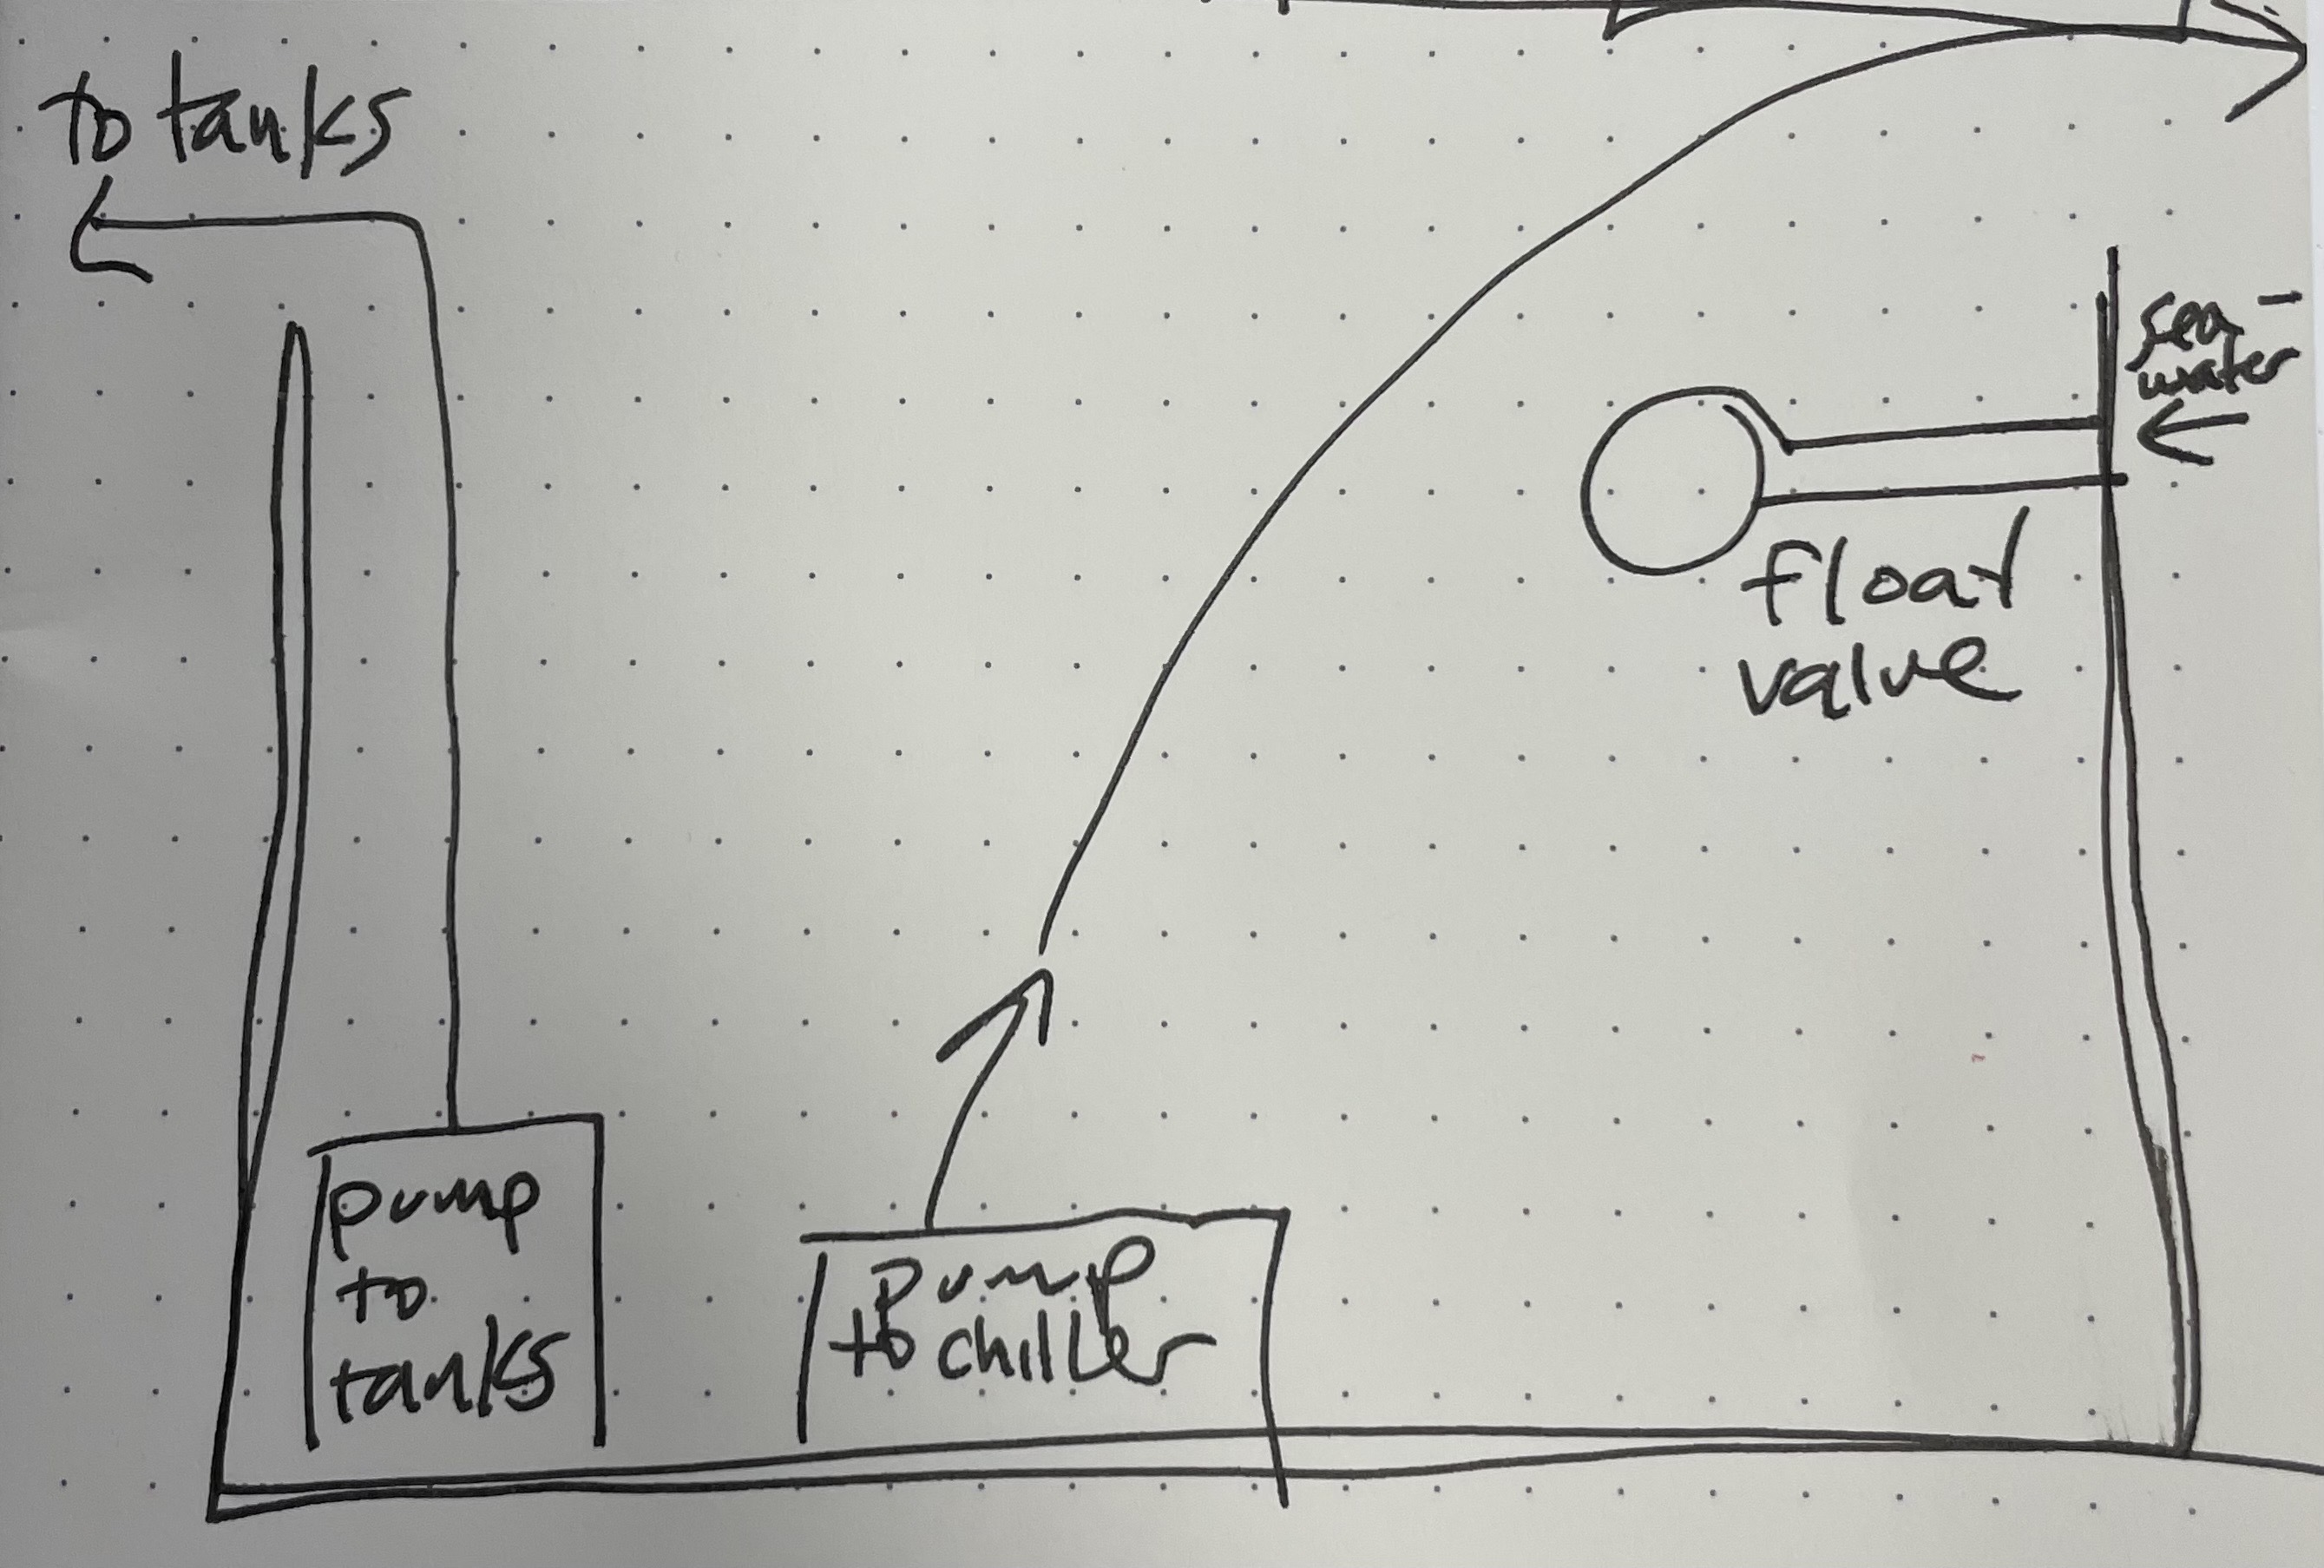 to tanks
sea-
water
float
valve
pump
to
tanks
pump
to chiller